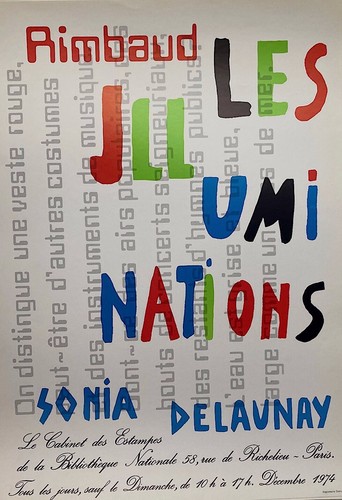 Rimbaud
LES
JLL
UMi
NATiONS
SONiA DELAUNAY
On distingue une veste rouge,
ut-être d'autres costumes
des instruments de musique
airs populaires, des
bouts de concerts seigneuriaux,
des restants d'hymnes publics
L'eau est grise et bleue,
large comme un bras de mer.
Le Cabinet des Estampes
de la Bibliothèque Nationale 58, rue de Richelieu - Paris.
Tous les jours, sauf le Dimanche, de 10 h à 17 h. Décembre 1974